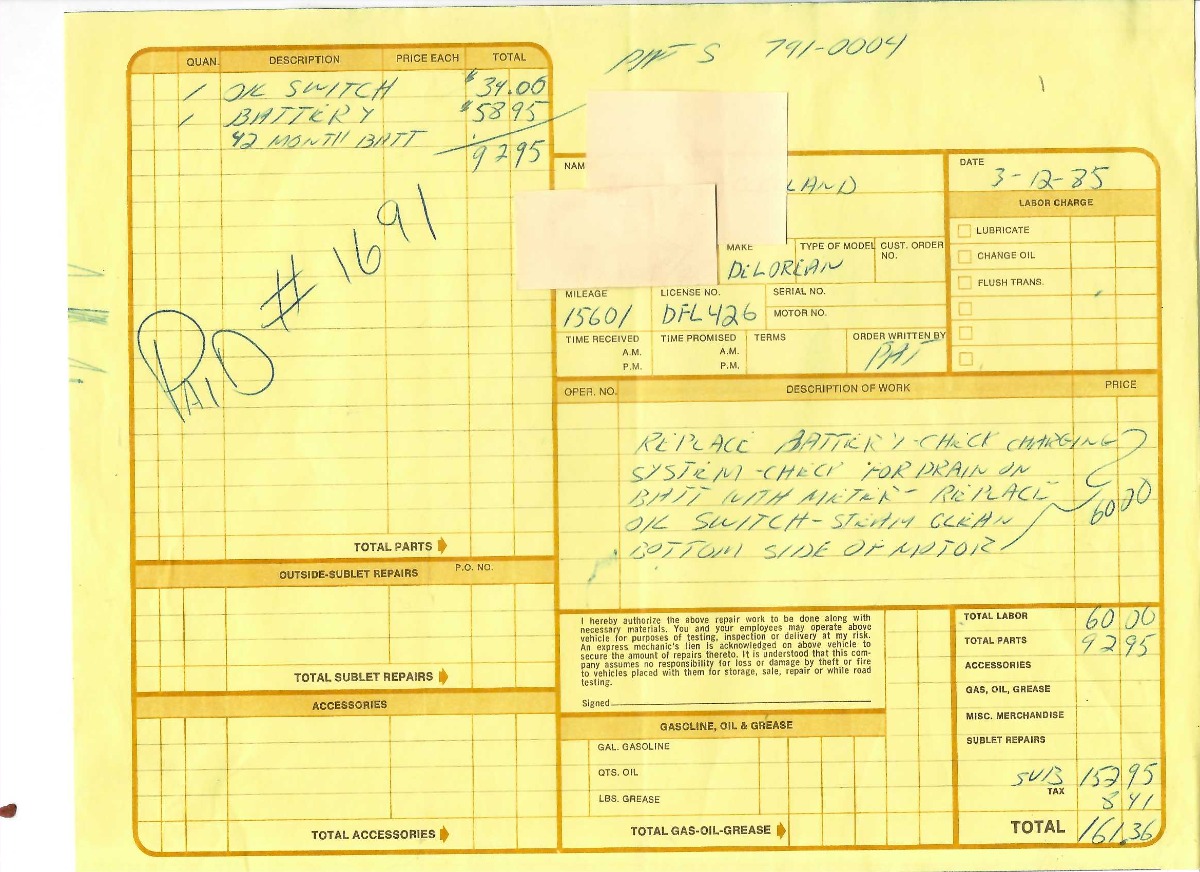 PAT S 791-0004
QUAN. DESCRIPTION PRICE EACH TOTAL
1 OIL SWITCH $34.00
1 BATTERY $58 95
42 MONTH BATT
92 95
PAID # 1691
TOTAL PARTS
OUTSIDE-SUBLET REPAIRS P.O. NO.
TOTAL SUBLET REPAIRS
ACCESSORIES
TOTAL ACCESSORIES
NAM
LAND
DATE
3-12-85
LABOR CHARGE
LUBRICATE
CHANGE OIL
FLUSH TRANS.
MAKE TYPE OF MODEL CUST. ORDER NO.
DELOREAN
MILEAGE LICENSE NO. SERIAL NO.
15601 DFL426 MOTOR NO.
TIME RECEIVED TIME PROMISED TERMS ORDER WRITTEN BY
A.M. A.M. PAT
P.M. P.M.
OPER. NO. DESCRIPTION OF WORK PRICE
REPLACE BATTERY-CHECK CHARGING
SYSTEM-CHECK FOR DRAIN ON
BATT WITH METER- REPLACE
OIL SWITCH-STEAM CLEAN 60 00
BOTTOM SIDE OF MOTOR
I hereby authorize the above repair work to be done along with
necessary materials. You and your employees may operate above
vehicle for purposes of testing, inspection or delivery at my risk.
An express mechanic's lien is acknowledged on above vehicle to
secure the amount of repairs thereto. It is understood that this com-
pany assumes no responsibility for loss or damage by theft or fire
to vehicles placed with them for storage, sale, repair or while road
testing.
Signed
GASOLINE, OIL & GREASE
GAL. GASOLINE
QTS. OIL
LBS. GREASE
TOTAL GAS-OIL-GREASE
TOTAL LABOR 60 00
TOTAL PARTS 92 95
ACCESSORIES
GAS, OIL, GREASE
MISC. MERCHANDISE
SUBLET REPAIRS
SUB 152 95
TAX 8 41
TOTAL 161.36